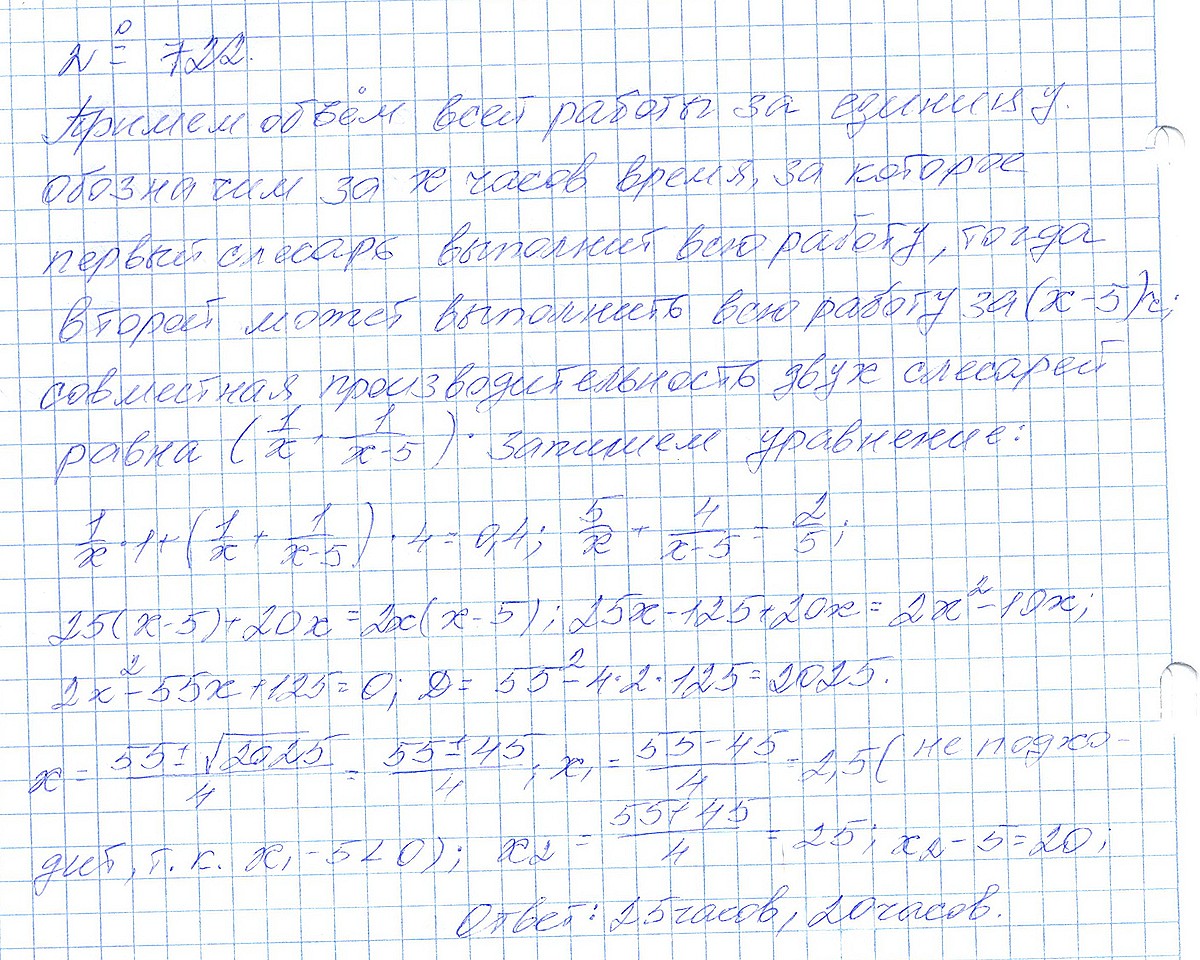 № 722.
Примем объём всей работы за единицу.
обозначим за x часов время, за которое
первый слесарь выполнит всю работу, тогда
второй может выполнить всю работу за (x-5)ч;
совместная производительность двух слесарей
равна (1/x + 1/(x-5)). Запишем уравнение:
1/x · 1 + (1/x + 1/(x-5)) · 4 = 0,4; 5/x + 4/(x-5) = 2/5;
25(x-5)+20x=2x(x-5); 25x-125+20x=2x²-10x;
2x²-55x+125=0; D=55²-4·2·125=2025.
x = (55±√2025)/4 = (55±45)/4; x₁ = (55-45)/4 = 2,5 (не подхо-
дит, т.к. x₁-5<0); x₂ = (55+45)/4 = 25; x₂-5=20;
Ответ: 25часов, 20часов.